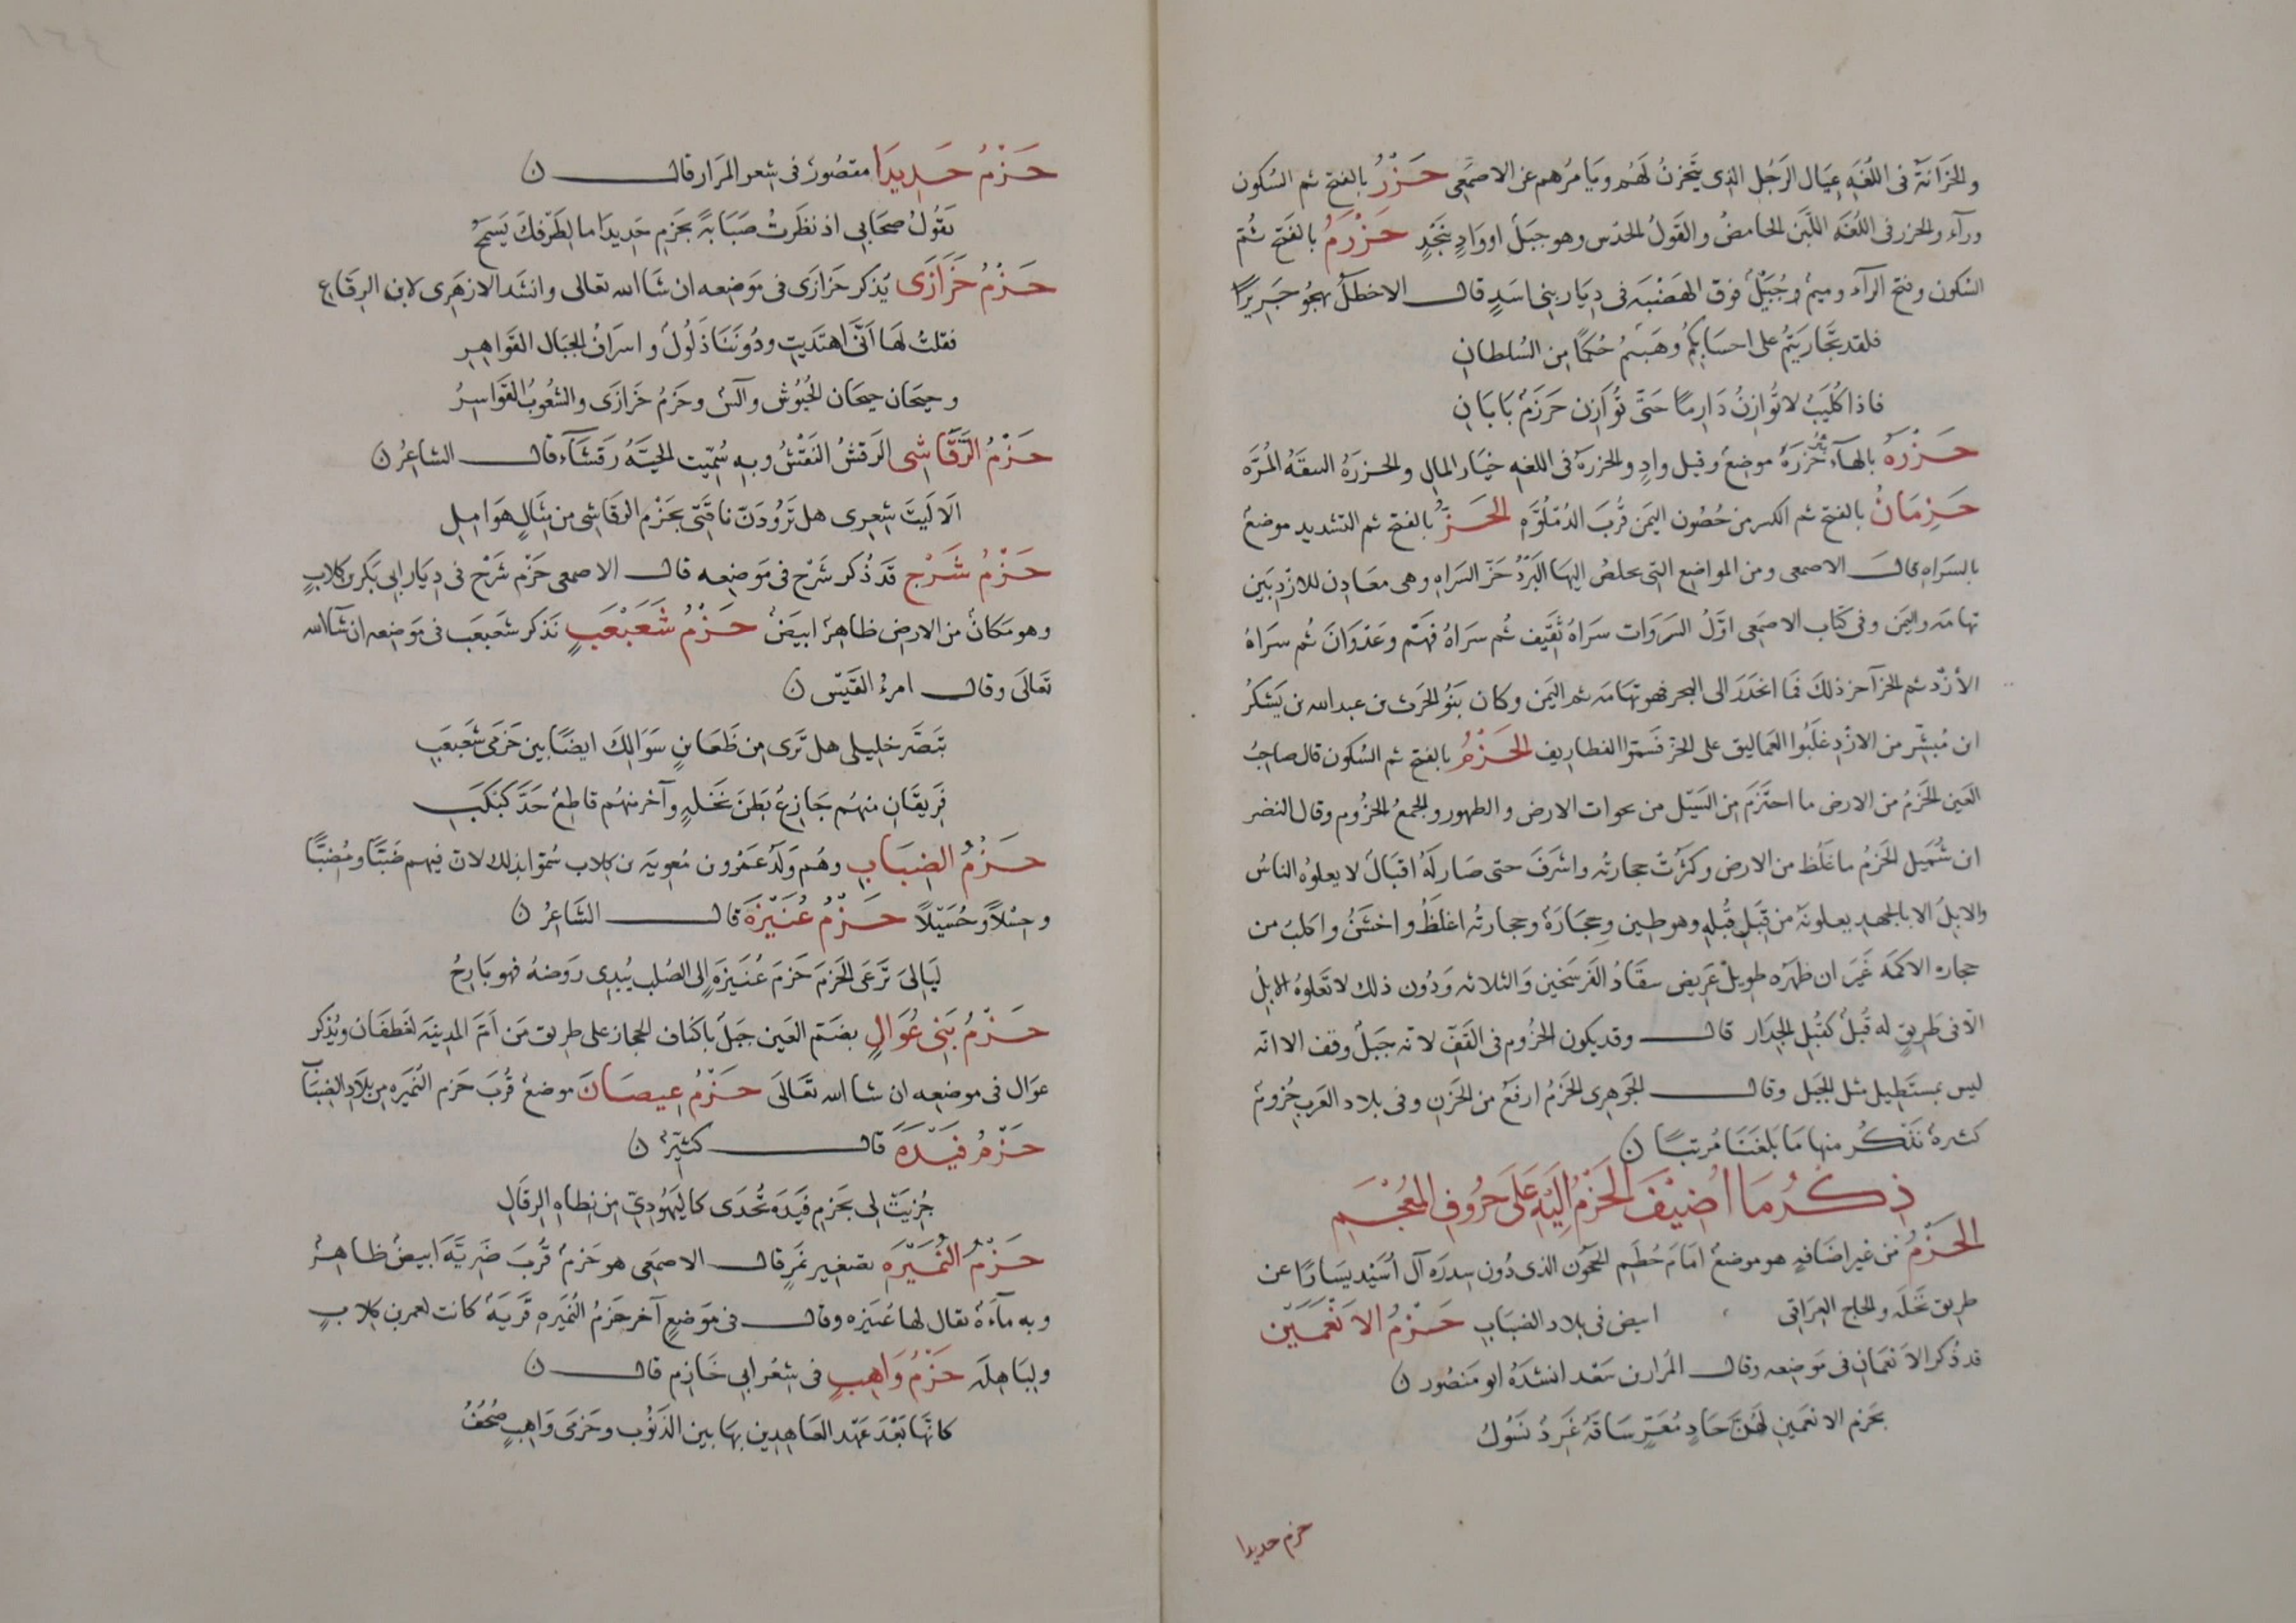 والحزانة فى اللغه عيال الرجل الذى يتحزن لهم ويامرهم عن الاصمعى حَزْرُ بالفتح ثم السكون
ورآء والحزر فى اللغه اللبن الحامض والقول الحدس وهو جبل او وادٍ بنجدٍ حَزْرَمُ بالفتح ثم
السكون وفتح الرآء وميم وجُبَيْلٌ فوق الهضبه فى ديار بنى اسدٍ قال الاخطل يهجو جريرًا
فلقد تجاريتم على احسابكم وهبتم حُكمًا من السلطانِ
فاذا كليب لا توازن دارمًا حتى توازن حزرم بابانِ
حَزْرَه بالهآء بئر حزره موضع وقيل وادٍ والحزرة فى اللغه خيار المال والحزره النبقه المرّه
حَزِمَانُ بالفتح ثم الكسر من حصون اليمن قرب الدملوّه الحَزُّ بالفتح ثم التشديد موضع
بالسراه قال الاصمعى ومن المواضع التى يخلص اليها البرد حزّ السراه وهى معادن للازد بين
تهامه واليمن وفى كتاب الاصمعى اوّل السروات سراة ثقيف ثم سراة فهم وعدوان ثم سراة
الأزد ثم الحز آخر ذلك فما انحدر الى البحر فهو تهامه ثم اليمن وكان بنو الحرث بن عبد الله بن يشكر
ابن مبشّر من الازد غلبوا العماليق على الحز فسموا الغطاريف الحَزْمُ بالفتح ثم السكون قال صاحب
العين الحزم من الارض ما احتزم من السيل من نحوات الارض والظهور والجمع الحزوم وقال النضر
ابن شميل الحزم ما غلظ من الارض وكثرت حجارته واشرف حتى صار له اقبال لا يعلوه الناس
والابل الا بالجهد يعلونه من قِبَلِ قُبلهِ وهو طين وحجارة وحجارته اغلظ واخشن واكلب من
حجاره الاكمه غير ان ظهره طويل عريض ينقاد الفرسخين والثلاثه ودون ذلك لا تعلوه الابل
الّا فى طريقٍ له قُبل كقبل الجدار قال وقد يكون الحزوم فى القفّ لانه جبل وقف الا انه
ليس بمستطيل مثل الجبل وقال الجوهرى الحزم ارفع من الحزن وفى بلاد العرب حزوم
كثيرة نذكر منها ما بلغنا مرتبًا ن
ذِكْرُ مَا اُضِيْفَ الحَزْمُ اِلَيْهِ عَلَى حُرُوفِ المُعْجَمِ
الحَزْمُ من غير اضافةٍ هو موضع امام خطم الحجون الذى دون سدره آل اُسَيْد يسارًا عن
طريق نخله والحاج العراقى ابيض فى بلاد الضباب حَزْمُ الاَنْعَمَيْنِ
قد ذكر الانعمان فى موضعه وقال المرار بن سعد انشده ابو منصور ن
بحزم الانعمين لهنّ حادٍ مُعَرٍّ ساقه غَرِدٌ نسول
حزم حديدا
حَزْمُ حَدِيدَا مقصور فى شعر المرار قال ن
يقول صحابى اذ نظرت صبابةً بحزم حديدا ما لطرفك يسمح
حَزْمُ خَزَازَى يذكر خزازى فى موضعه ان شا الله تعالى وانشد الازهرى لابن الرقاع
فقلت لها انّى اهتديتِ ودوننا ذلول واسراف الجبال القواهرِ
وجيحان جيحان الجيوش وآلس وحزم خزازى والشعوب القواسرُ
حَزْمُ الرَّقَاشِى الرقش النقش وبه سُميت الحيّه رقشآء قال الشاعر ن
الا ليت شعرى هل ترودنّ ناقتى بحزم الرقاشى من مثالٍ هواملِ
حَزْمُ شَرْجٍ قد ذكر شرج فى موضعه قال الاصمعى حزم شرج فى ديار ابى بكر بن كلابٍ
وهو مكان من الارض ظاهر ابيض حَزْمُ شَعَبْعَبٍ نذكر شعبعب فى موضعه ان شآ الله
تعالى وقال امرؤ القيس ن
تبصّر خليلى هل ترى من ظعاينٍ سوالك ايضًا بين حزمى شعبعبِ
فريقان منهم جازع بطن نخلهٍ وآخر منهم قاطع حدّ كبكبِ
حَزْمُ الضِبَابِ وهم ولد عمرو بن معويه بن كلاب سموا بذلك لان فيهم ضبًّا ومضبًّا
وحسلًا وحُسيلًا حَزْمُ عُنَيْزَةَ قال الشاعر ن
ليالى ترعى الحزم حزم عُنيزةٍ الى الصلب يبدى روضهُ فهو بارحُ
حَزْمُ بَنِى عُوَالٍ بضم العين جبل باكناف الحجاز على طريق من امّ المدينه لغطفان ويذكر
عوال فى موضعه ان شا الله تعالى حَزْمُ عِيصَانَ موضع قرب حزم النميره من بلاد الضباب
حَزْمُ فَيْدَةَ قال كثيّر ن
حُزيت لى بحزم فيده تُحدى كاليهودىّ من نطاه الرقالِ
حَزْمُ النُّمَيْرَه تصغير نمرٍ قال الاصمعى هو حزم قرب ضريّه ابيض ظاهر
وبه مآءة يقال لها نميره وقال فى موضع آخر حزم النميره قرية كانت لعمرو بن كلابٍ
ولباهله حَزْمُ وَاهِبٍ فى شعر ابى خازم قال ن
كانّها بعد عهد العاهدين بها بين الذنوب وحزمى واهبٍ صُحفُ